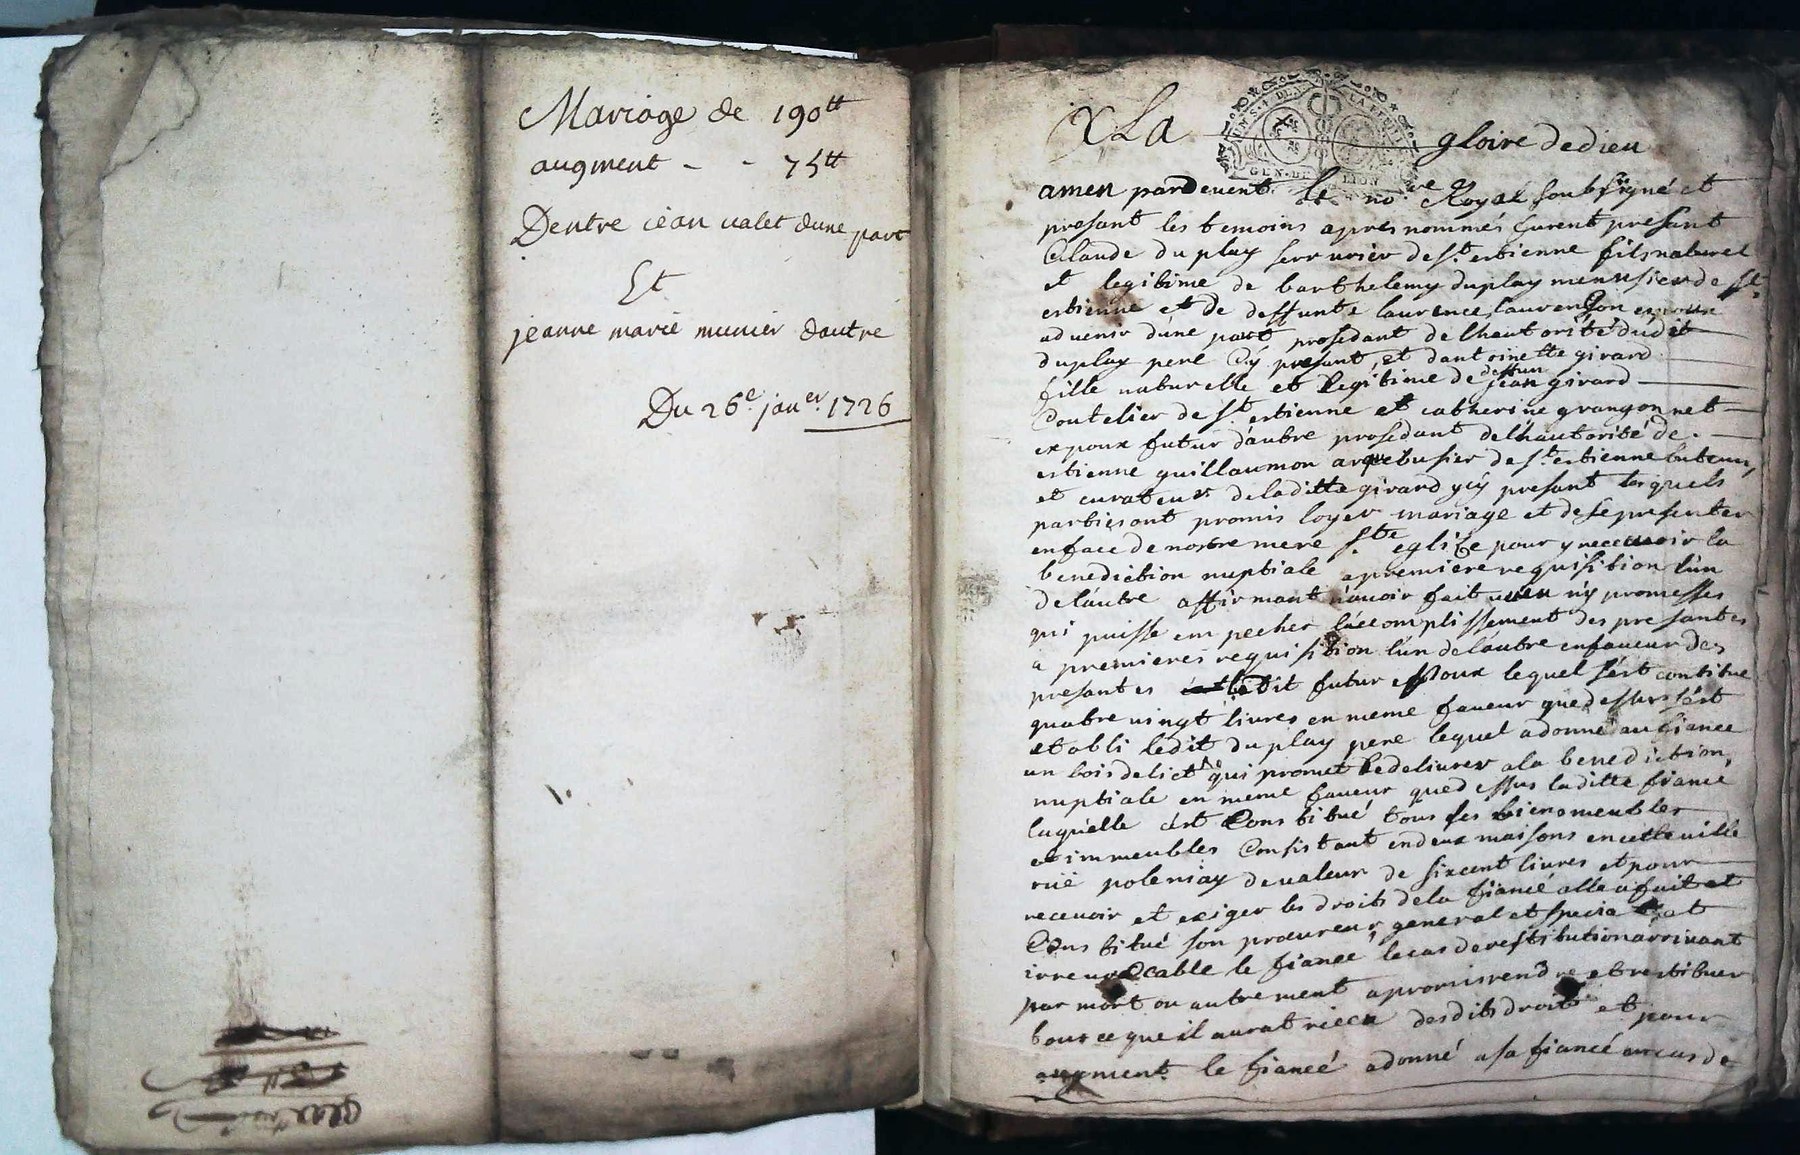 Mariage de 190tt
augment - - 75tt
Dentre jean valet dune part
Et
jeanne marie munier dautre
Du 26e. janer. 1726
A La gloire de dieu
UN S. 4 DEN. LA FEUILLE
GEN. DE LYON
amen pardevent le nore Royal soubsigné et
presant les temoins apres nommés furent presant
Claude duplay serrurier de st. estienne fils naturel
et legitime de barthelemy duplay menusier de st.
estienne et de deffunte laurence laurenson expoux
advenir dúne part prosedant de lhautorité dudit
duplay pere Cy presant, et dantoinette girard
fille naturelle et legitime de deffun jean girard
Coutelier de st. estienne et catherine grangonnet
expoux futur dáutre prosedant de lháutorité de.
estienne guillaumon arquebusier de st. estienne tuteur,
et curateur de laditte girard ycy presant lesquels
parties ont promis loyer mariage et de se presenter
enface de nostre mere ste eglise pour y recevoir la
benediction nuptiale a premiere requisition lún
de láutre affirmant náuoir fait uen ny promesses
qui puisse empecher láccomplissement des presantes
a premieres requisition lún de láutre enfaveur des
presantes ledit futur espoux lequel sést contitue
quatre vingt livres en meme faveur que dessus sést
etabli ledit duplay pere lequel a donné au fiance
un bois de lict qui promet de delivrer a la benediction,
nuptiale en meme faveur que dessus laditte fiance
laquélle cést Constitué tous ses biens meubles
et immeubles Consistant en deux maisons en cette ville
rüe polenias de valeur de sixcent livres et pour
recevoir et exiger les droits de la fiancé elle a fait et
Constitué son procureur general et special et
irrevoccable le fiancé le cas de restitution arrivant
par mort ou autrement a promis rendre et restituer
tout ce que il aurat rececu desdits droit et pour
augment le fiancé a donné a sa fiancé en cas de